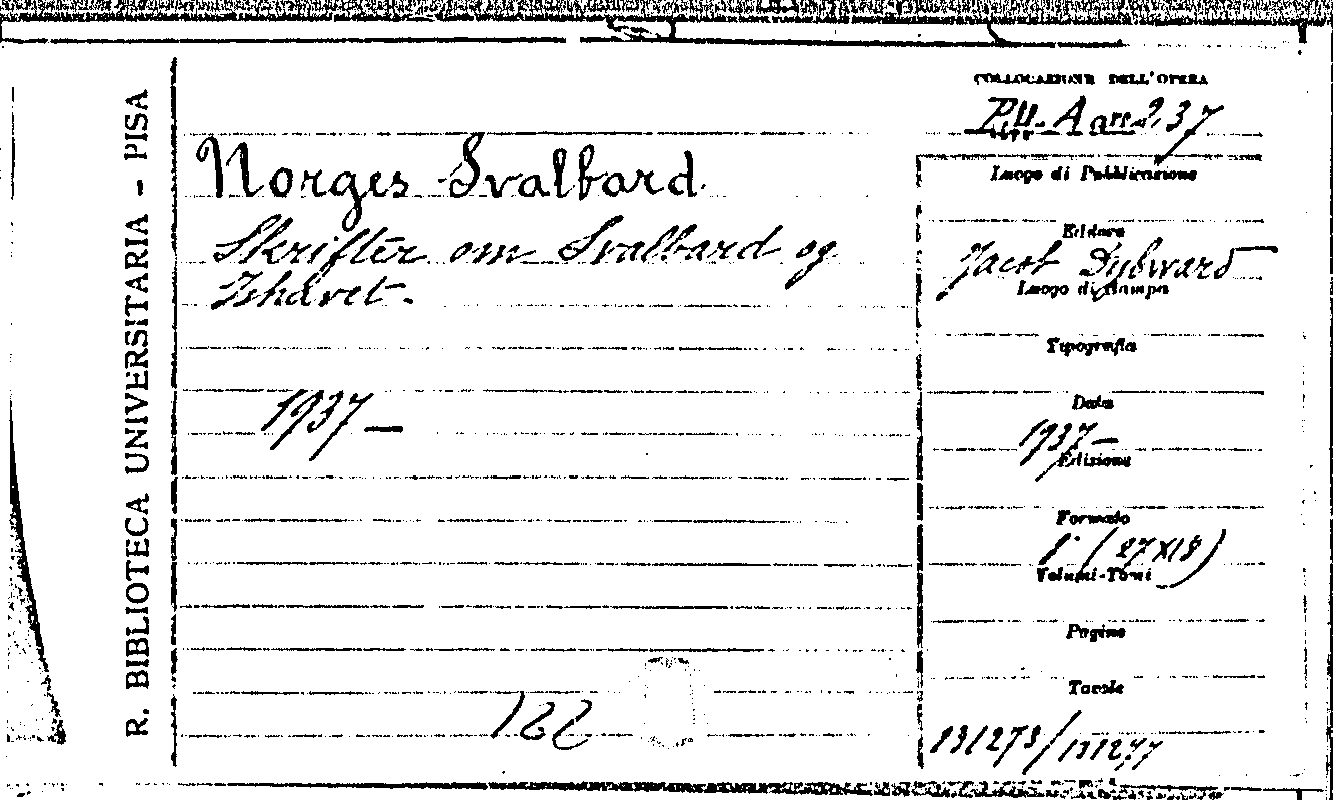 R. BIBLIOTECA UNIVERSITARIA - PISA
Norges Svalbard
Skrifter om Svalbard og
Ishavet.
1937 —
122
COLLOCAZIONE DELL'OPERA
Luogo di Pubblicazione
Editore
Jacob Dybward
Luogo di Stampa
Tipografia
Data
1937 —
Edizione
Formato
(27X18)
Volumi-Tomi
Pagine
Tavole
131273/131277